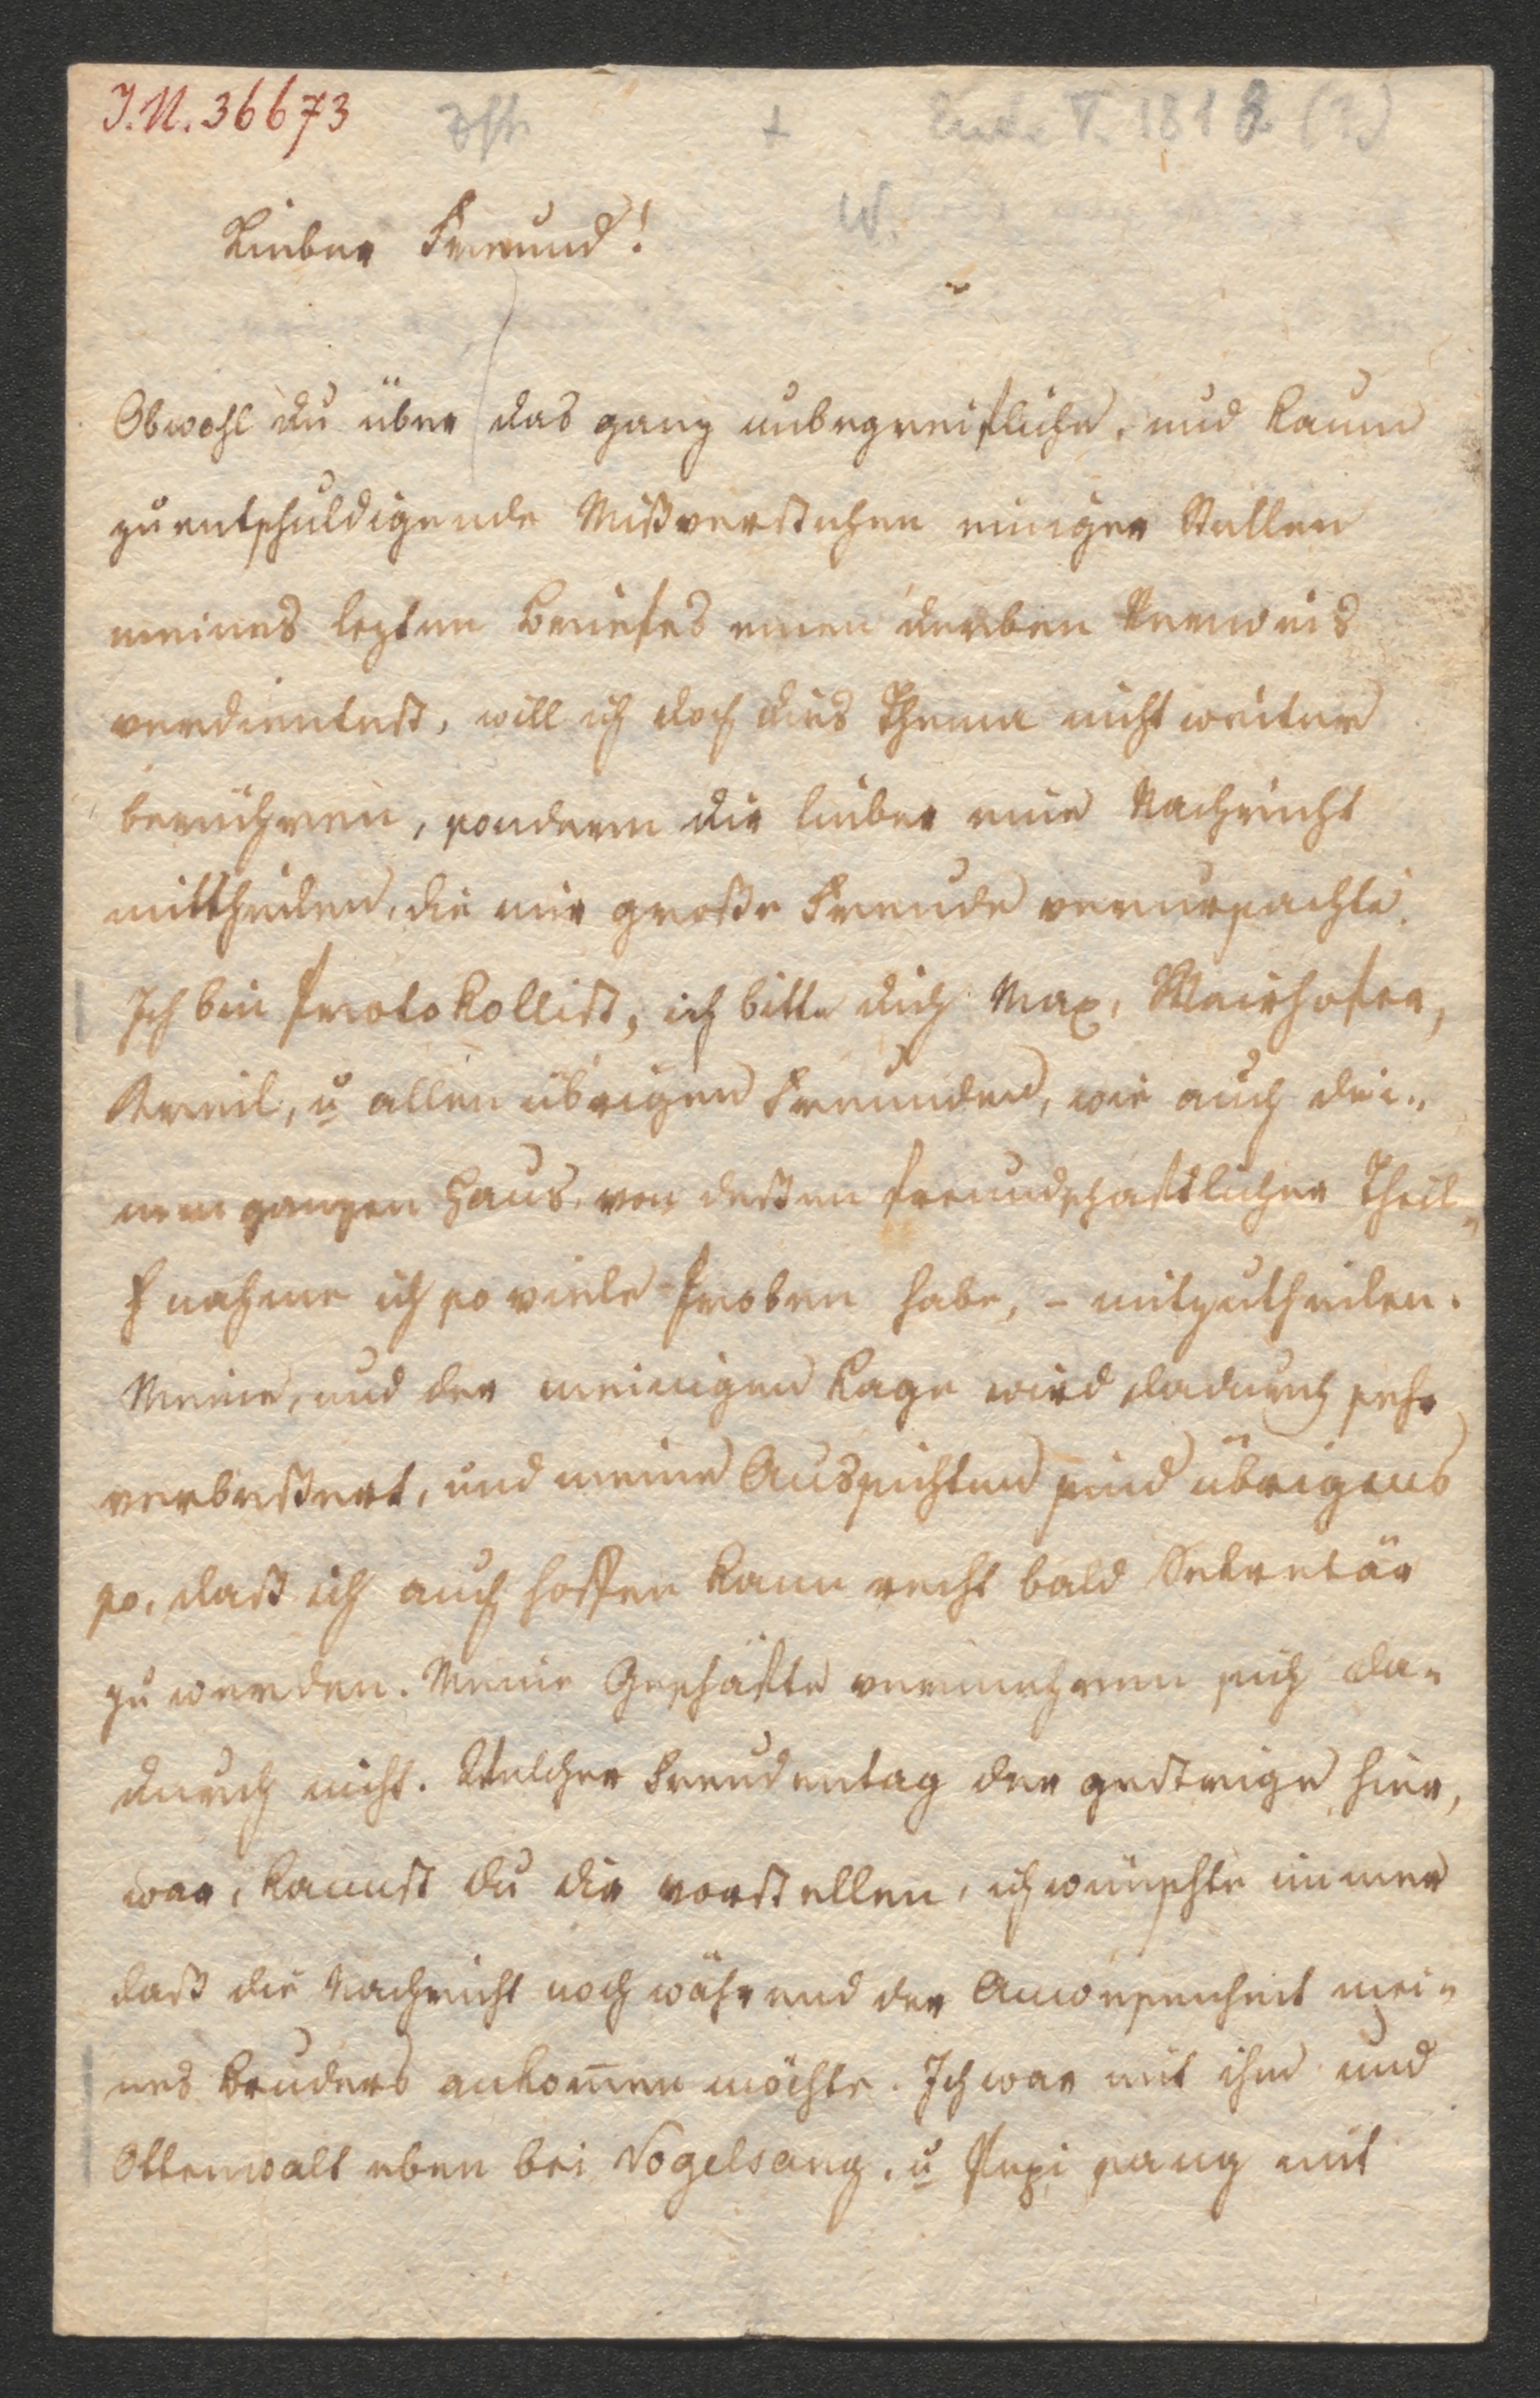 J.N. 36673
+ Ende V. 1818 (?)
W.
Lieber Freund!
Obwohl du über das ganz unbegreifliche, und kaum
zu entschuldigende Mißverstehen einiger Stellen
meines lezten Briefes einen derben Verweis
verdientest, will ich doch dies Thema nicht weiter
berühren, sondern dir lieber eine Nachricht
mittheilen, die mir große Freude verursachte.
Ich bin Protokollist, ich bitte dich Max, Mairhofer,
Kreil, u allen übrigen Freunden, wie auch dei„
nem ganzen Haus, von deßen freundschaftlicher Theil„
nahme ich so viele Proben habe, – mitzutheilen.
Meine, und der meinigen Lage wird dadurch sehr
verbeßert, und meine Aussichten sind übrigens
so, daß ich auch hoffen kann recht bald Sekretär
zu werden. Meine Geschäfte vermehren sich da„
durch nicht. Welcher Freudentag der gestrige hier,
war, kannst du dir vorstellen, ich wünschte immer
daß die Nachricht noch während der Anwesenheit mei„
nes Bruders ankom̅en möchte. Ich war mit ihm und
Ottenwalt eben bei Vogelsang, u Pepi sang mit